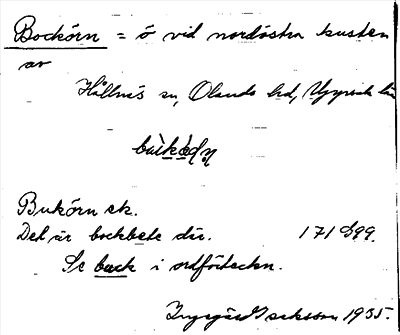 Bockörn = ö vid nordöstra kusten
av
Hållnäs sn, Olands hd, Uppsala län
Bukörn ek.
Det är bockbete där. 171 D99.
Se buck i ordförteckn.
Ingegärd Isaksson 1935.